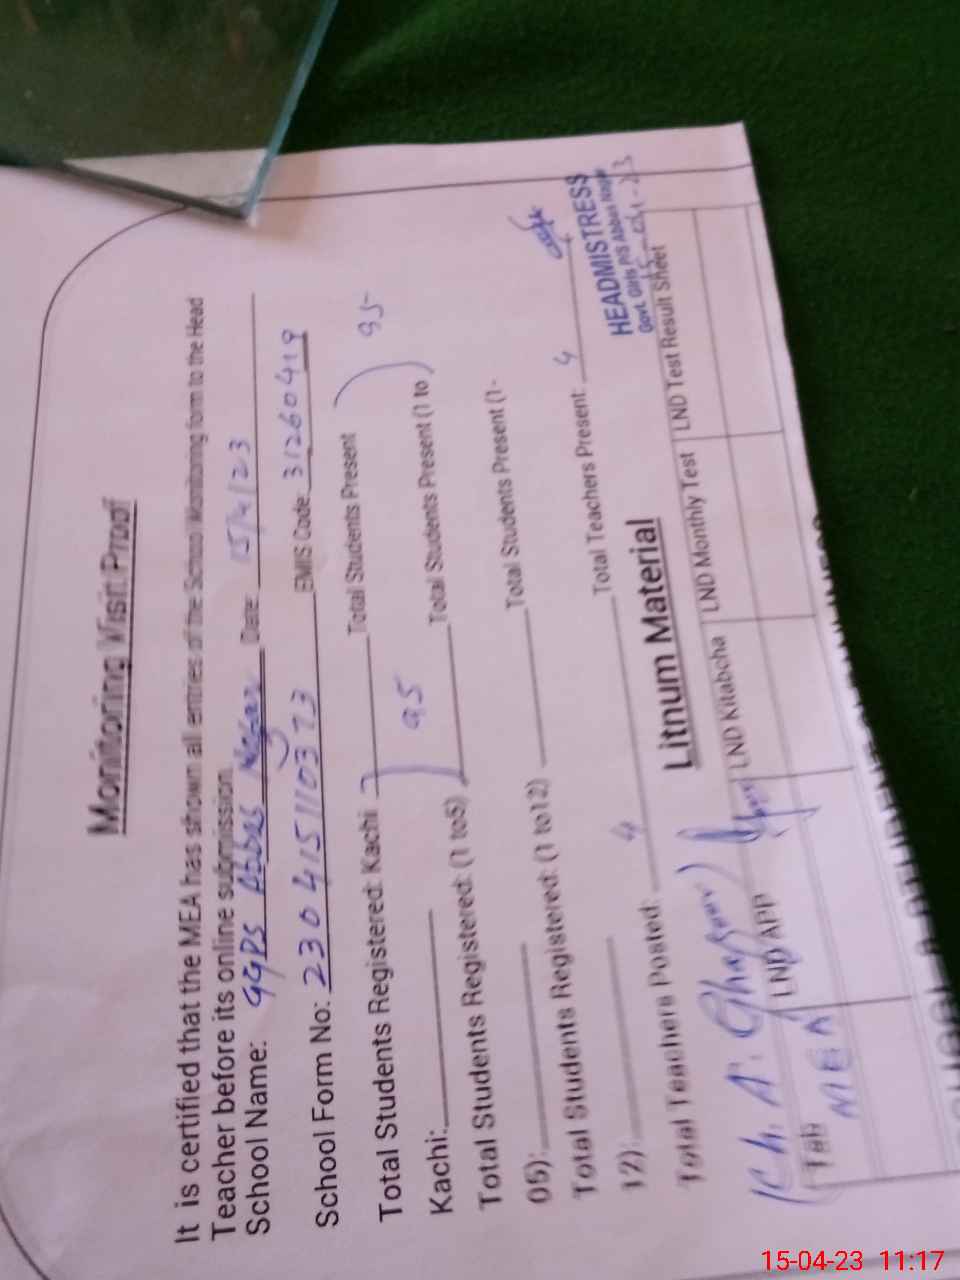 Monitoring Visit Proof
It is certified that the MEA has shown all entries of the School Monitoring form to the Head
Teacher before its online submission.
School Name: GGPS Abbas Nagar Date: 15/4/23
School Form No: 230415110373 EMIS Code: 31260419
Total Students Registered: Kachi 95 Total Students Present 95
Kachi: Total Students Present (1 to
Total Students Registered: (1 to5)
05): Total Students Present (1-
Total Students Registered: (1 to12)
12): Total Teachers Present: 4
Total Teachers Posted: 4
HEADMISTRESS
Govt. Girls P/S Abbas Nagar
15-04-23
Litnum Material
(Ch. A. Ghafoor)
MEA
Tab LND APP LND Kitabcha LND Monthly Test LND Test Result Sheet
15-04-23 11:17